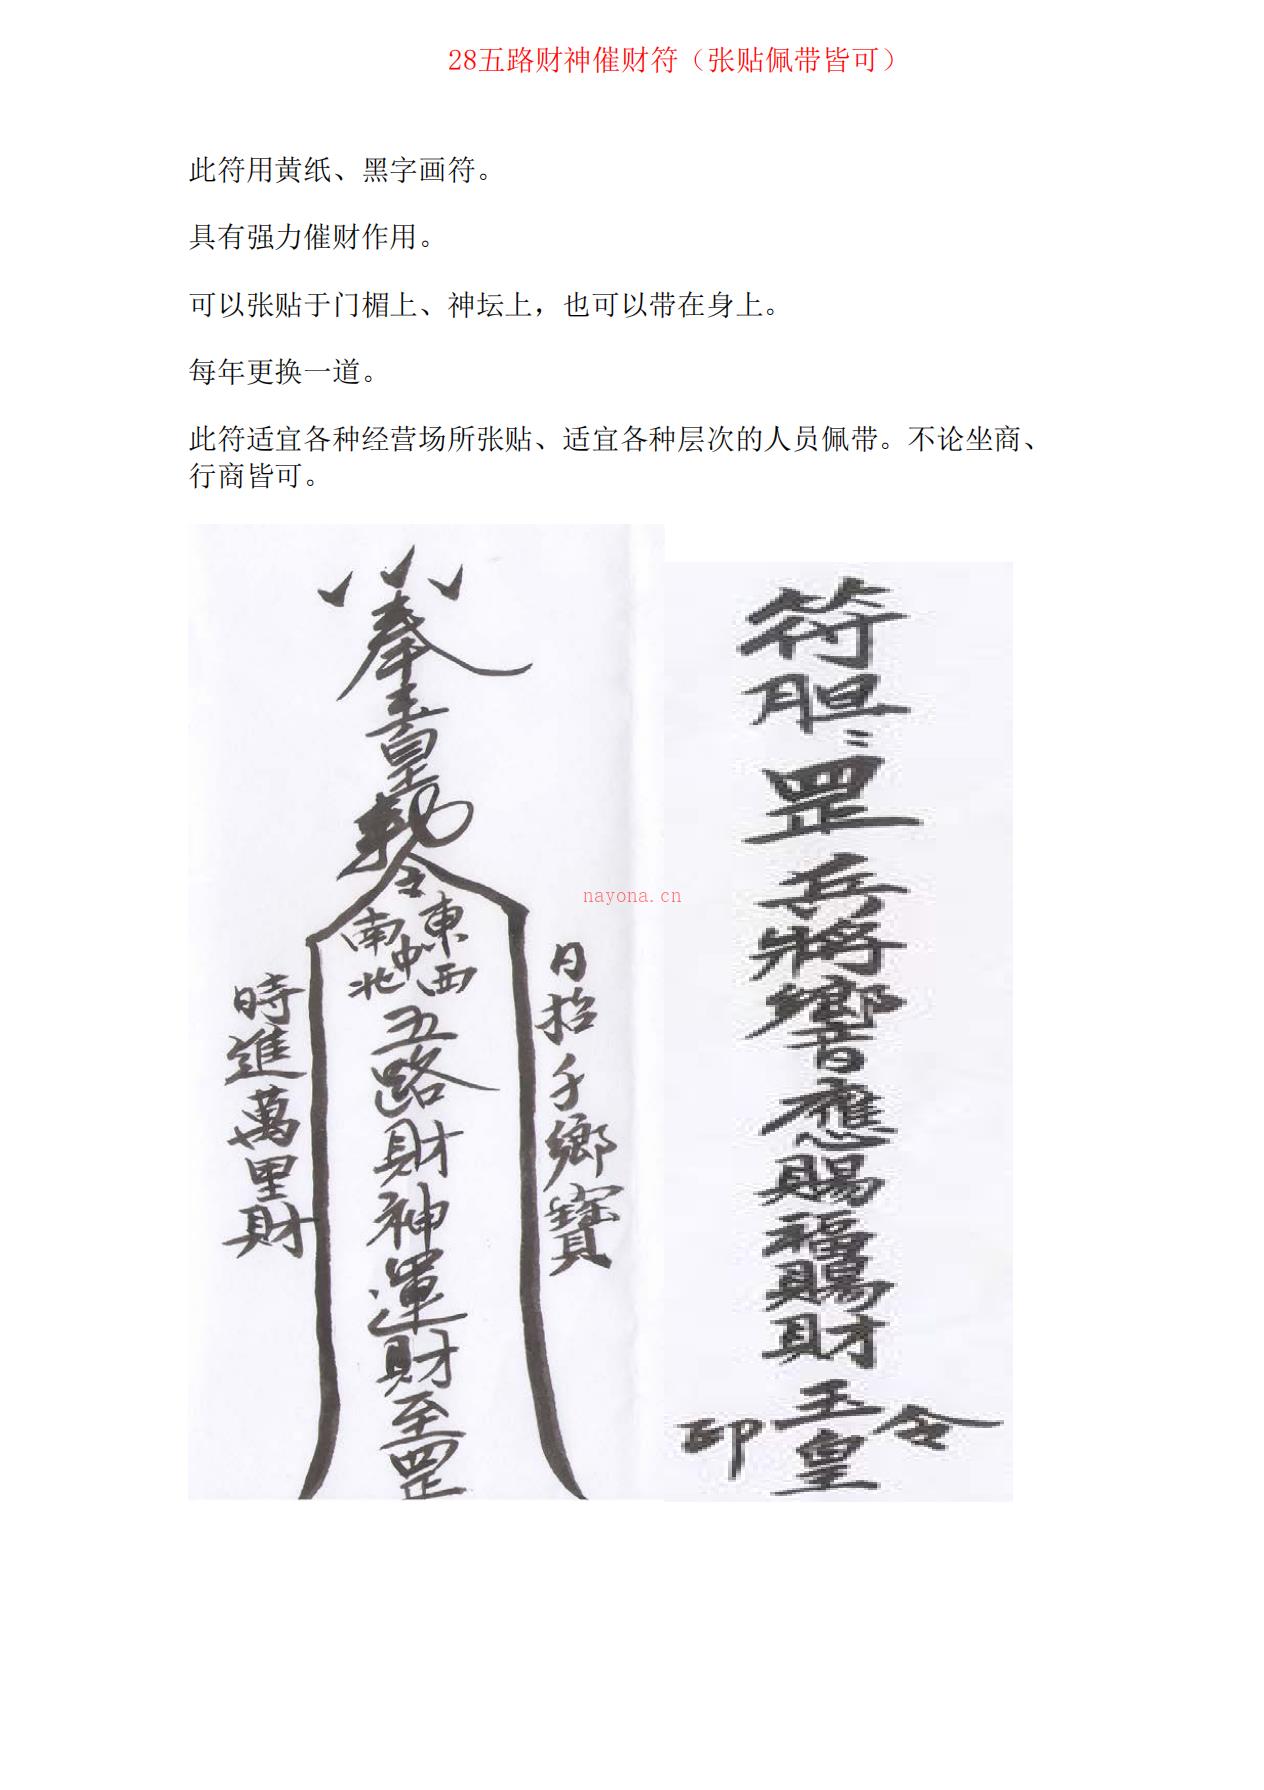 28五路财神催财符（张贴佩带皆可）
此符用黄纸、黑字画符。
具有强力催财作用。
可以张贴于门楣上、神坛上，也可以带在身上。
每年更换一道。
此符适宜各种经营场所张贴、适宜各种层次的人员佩带。不论坐商、
行商皆可。
奉玉皇勅令
東西中南北
五路財神運財至罡
日招千鄉寶
時進萬里財
nayona.cn
符胆：罡兵將響應賜福賜財
玉皇
令
印